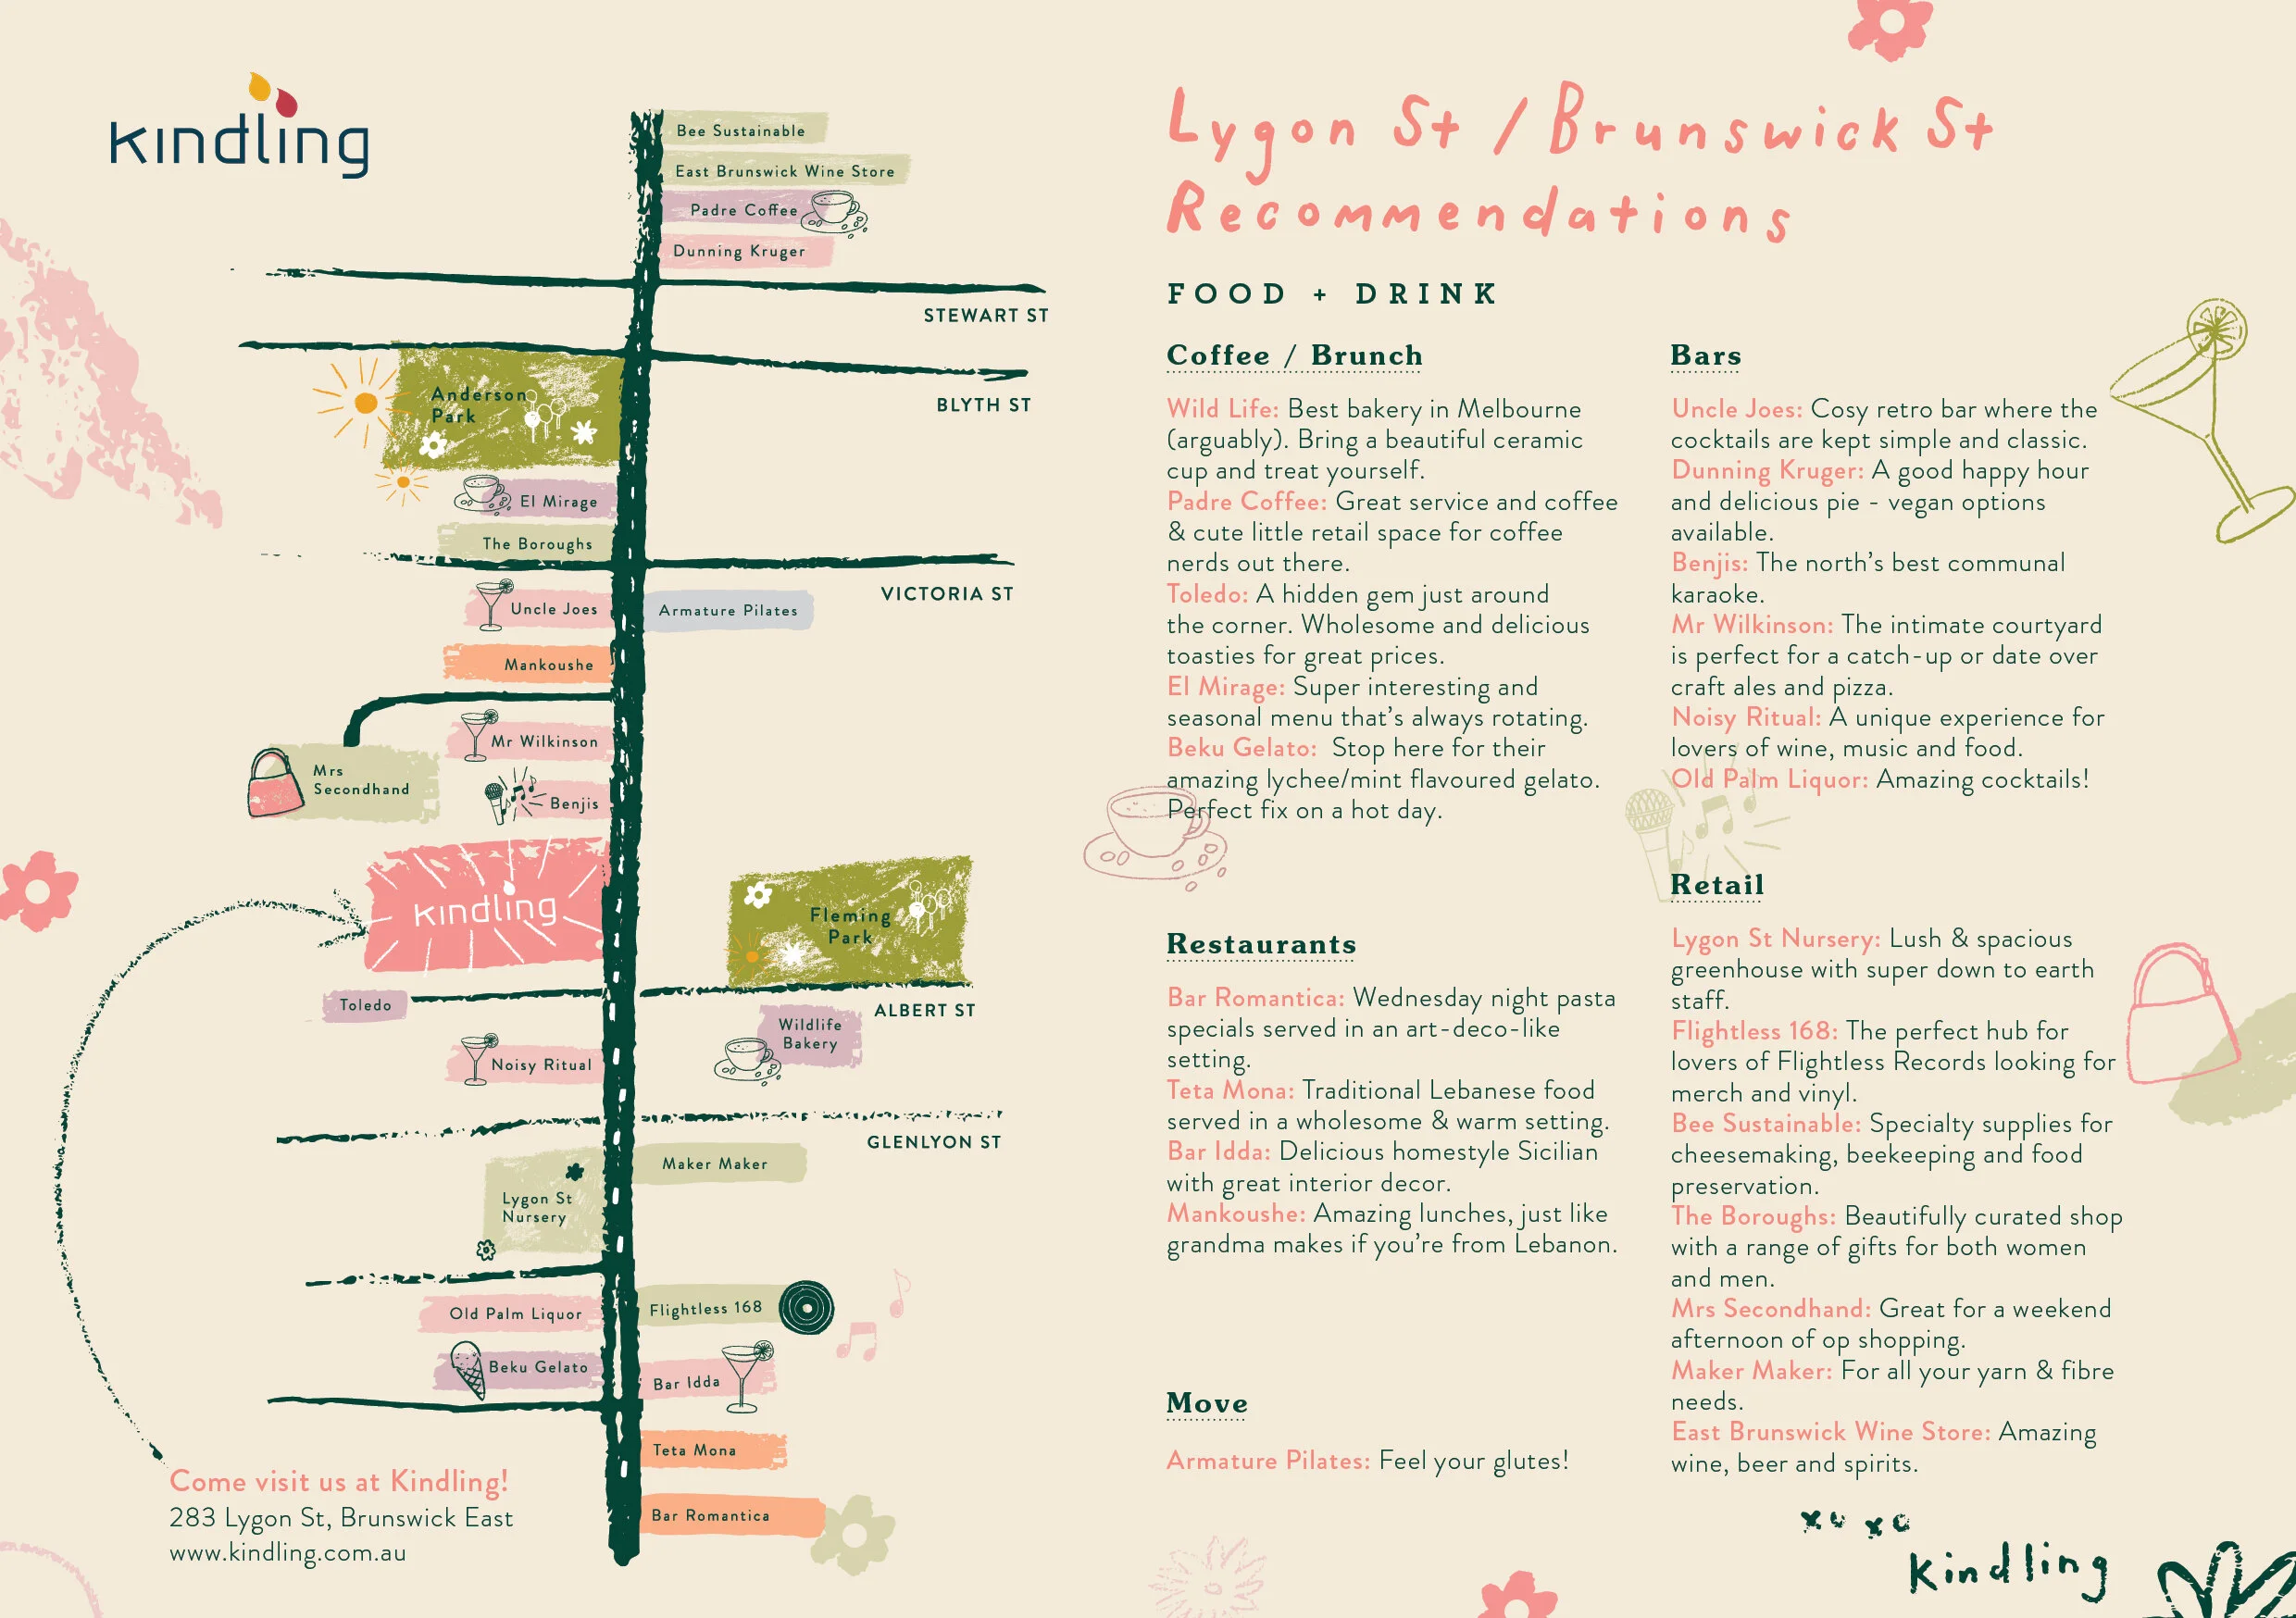 kindling
Bee Sustainable
East Brunswick Wine Store
Padre Coffee
Dunning Kruger
STEWART ST
BLYTH ST
Anderson
Park
El Mirage
The Boroughs
VICTORIA ST
Uncle Joes
Armature Pilates
Mankoushe
Mr Wilkinson
Mrs
Secondhand
Benjis
kindling
Fleming
Park
Toledo
ALBERT ST
Wildlife
Bakery
Noisy Ritual
GLENLYON ST
Maker Maker
Lygon St
Nursery
Old Palm Liquor
Flightless 168
Beku Gelato
Bar Idda
Teta Mona
Bar Romantica
Come visit us at Kindling!
283 Lygon St, Brunswick East
www.kindling.com.au
Lygon St / Brunswick St
Recommendations
FOOD + DRINK
Coffee / Brunch
Wild Life: Best bakery in Melbourne
(arguably). Bring a beautiful ceramic
cup and treat yourself.
Padre Coffee: Great service and coffee
& cute little retail space for coffee
nerds out there.
Toledo: A hidden gem just around
the corner. Wholesome and delicious
toasties for great prices.
El Mirage: Super interesting and
seasonal menu that's always rotating.
Beku Gelato: Stop here for their
amazing lychee/mint flavoured gelato.
Perfect fix on a hot day.
Restaurants
Bar Romantica: Wednesday night pasta
specials served in an art-deco-like
setting.
Teta Mona: Traditional Lebanese food
served in a wholesome & warm setting.
Bar Idda: Delicious homestyle Sicilian
with great interior decor.
Mankoushe: Amazing lunches, just like
grandma makes if you're from Lebanon.
Move
Armature Pilates: Feel your glutes!
Bars
Uncle Joes: Cosy retro bar where the
cocktails are kept simple and classic.
Dunning Kruger: A good happy hour
and delicious pie - vegan options
available.
Benjis: The north's best communal
karaoke.
Mr Wilkinson: The intimate courtyard
is perfect for a catch-up or date over
craft ales and pizza.
Noisy Ritual: A unique experience for
lovers of wine, music and food.
Old Palm Liquor: Amazing cocktails!
Retail
Lygon St Nursery: Lush & spacious
greenhouse with super down to earth
staff.
Flightless 168: The perfect hub for
lovers of Flightless Records looking for
merch and vinyl.
Bee Sustainable: Specialty supplies for
cheesemaking, beekeeping and food
preservation.
The Boroughs: Beautifully curated shop
with a range of gifts for both women
and men.
Mrs Secondhand: Great for a weekend
afternoon of op shopping.
Maker Maker: For all your yarn & fibre
needs.
East Brunswick Wine Store: Amazing
wine, beer and spirits.
xo xo
kindling